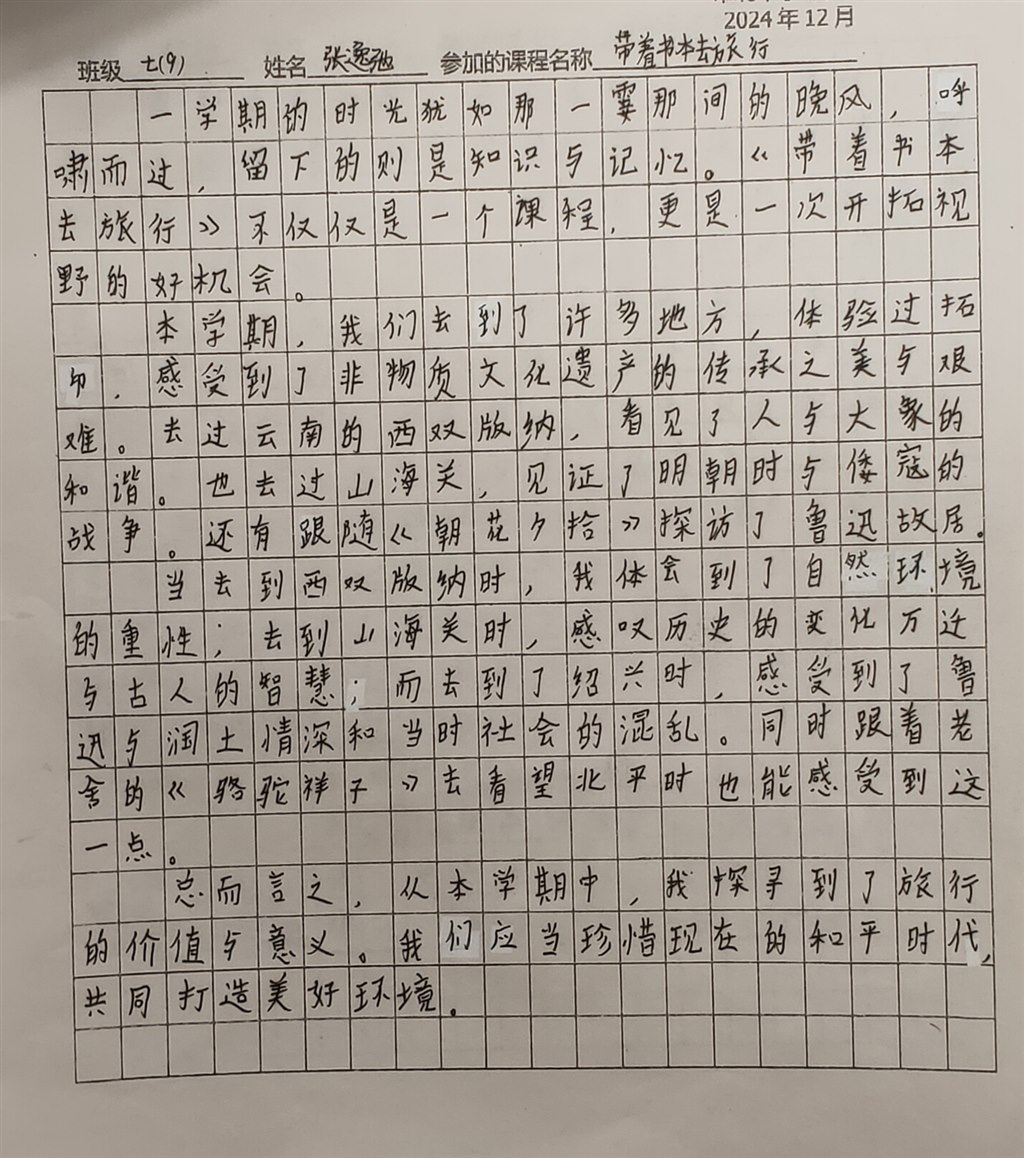 2024年12月
班级 七(9) 姓名 张逸弛 参加的课程名称 带着书本去旅行
一学期的时光犹如那一霎那间的晚风，呼
啸而过，留下的则是知识与记忆。《带着书本
去旅行》不仅仅是一个课程，更是一次开拓视
野的好机会。
本学期，我们去到了许多地方，体验过拓
印，感受到了非物质文化遗产的传承之美与艰
难。去过云南的西双版纳，看见了人与大象的
和谐。也去过山海关，见证了明朝时与倭寇的
战争。还有跟随《朝花夕拾》探访了鲁迅故居。
当去到西双版纳时，我体会到了自然环境
的重性；去到山海关时，感叹历史的变化万迁
与古人的智慧；而去到了绍兴时，感受到了鲁
迅与润土情深和当时社会的混乱。同时跟着老
舍的《骆驼祥子》去看望北平时也能感受到这
一点。
总而言之，从本学期中，我探寻到了旅行
的价值与意义。我们应当珍惜现在的和平时代，
共同打造美好环境。